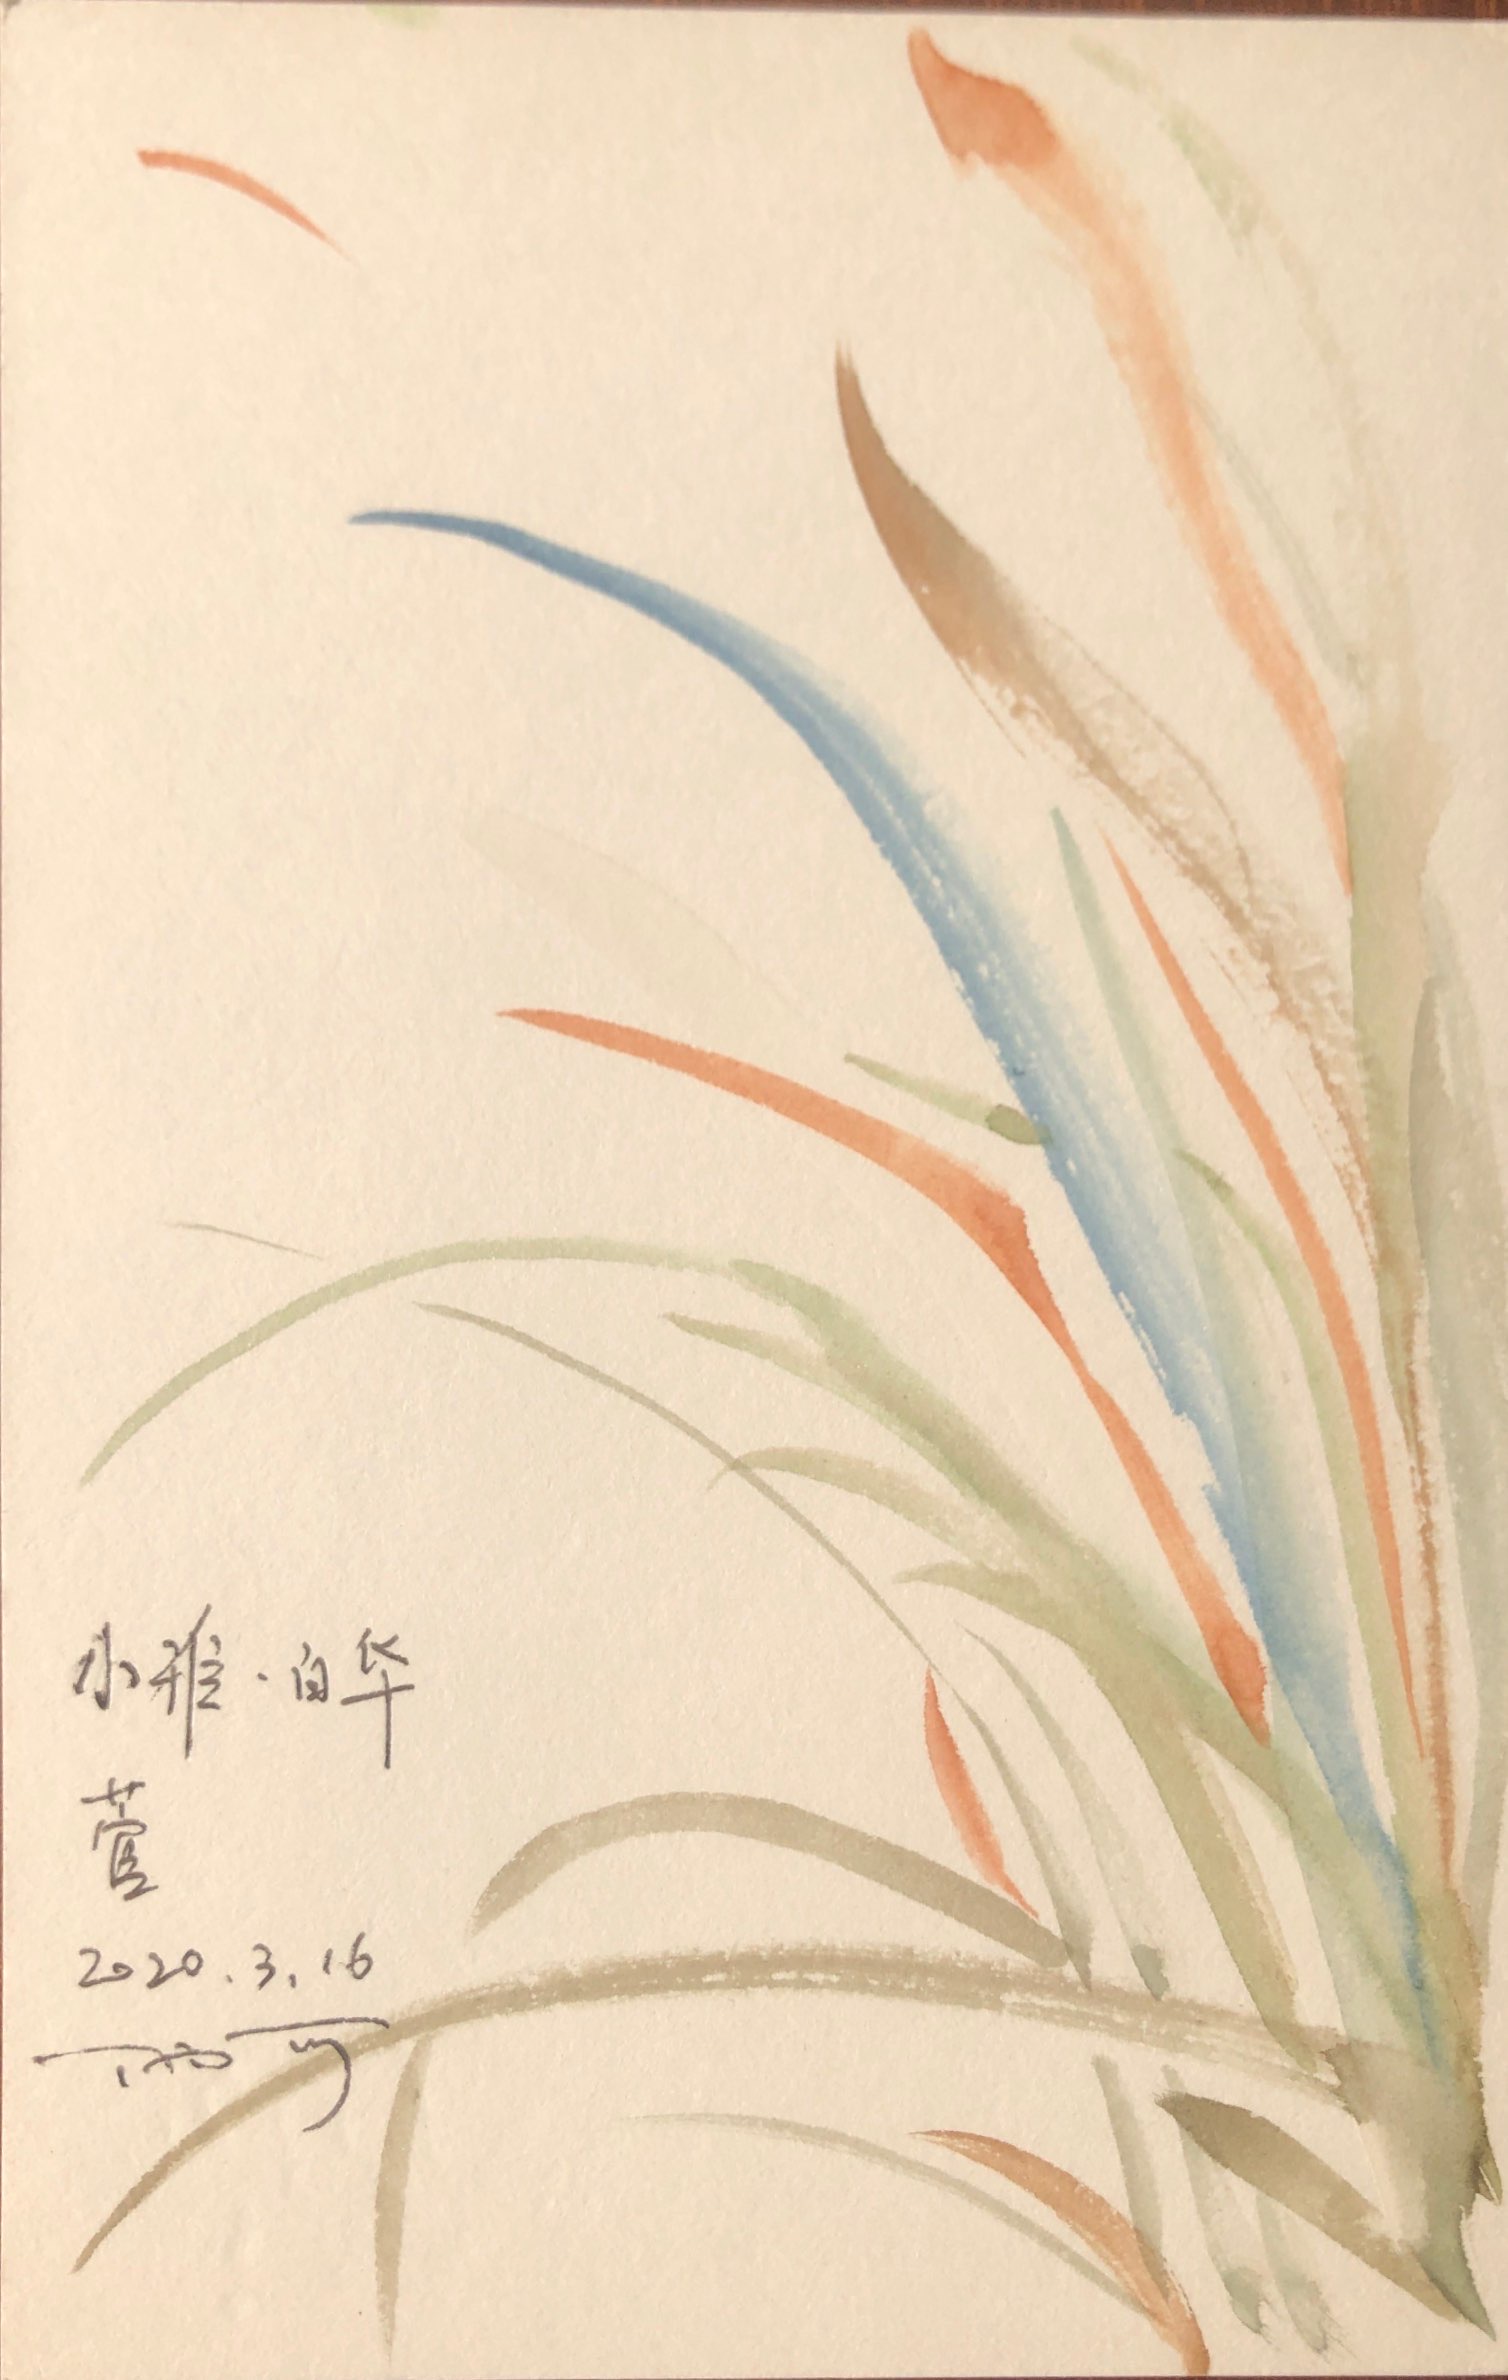 小雅·白华
菅
2020.3.16